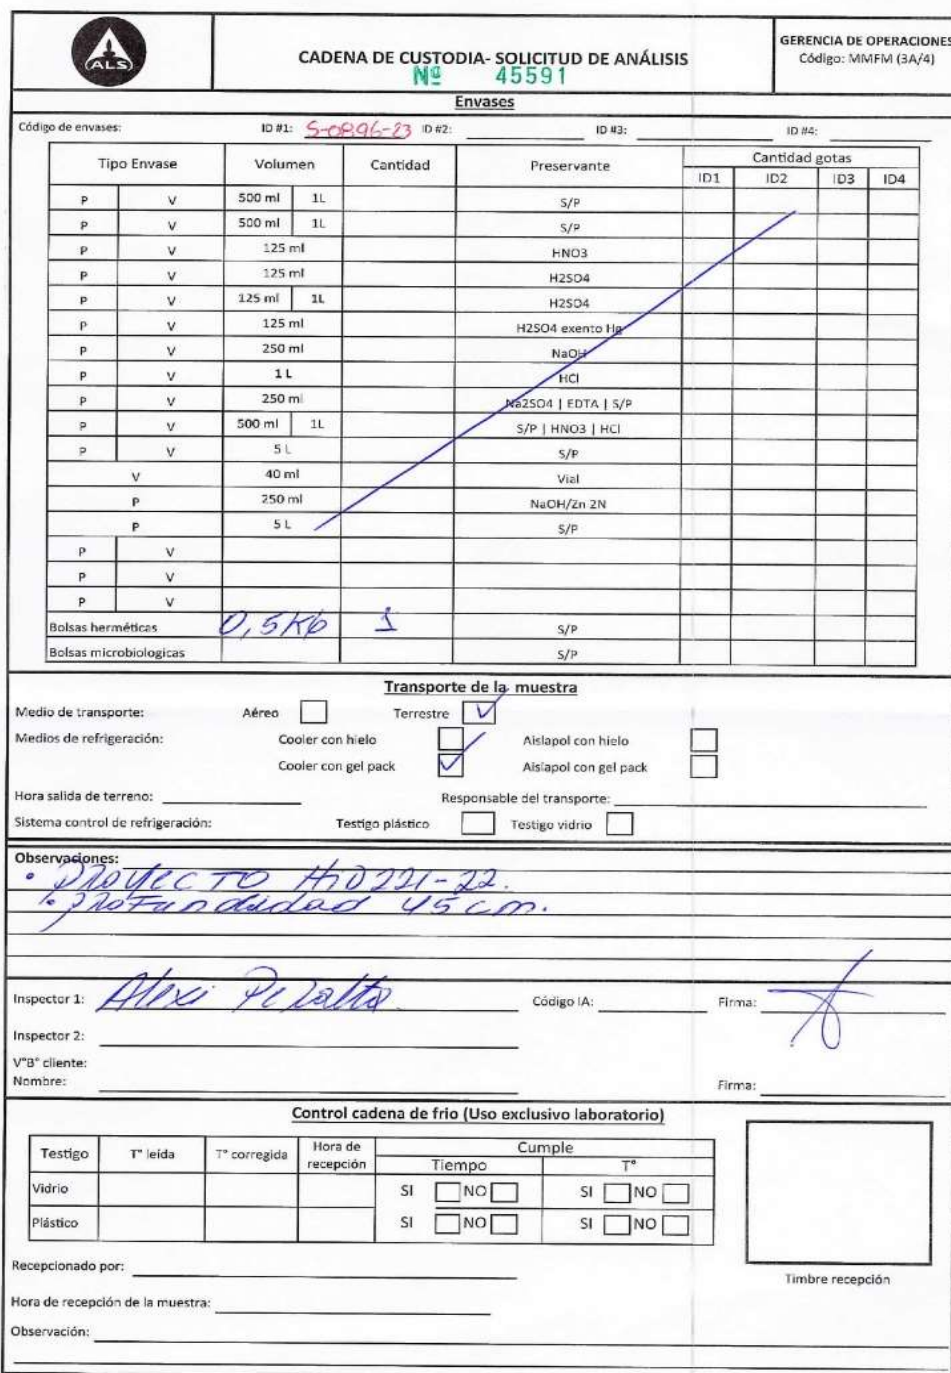 ALS
CADENA DE CUSTODIA- SOLICITUD DE ANÁLISIS
Nº 45591
GERENCIA DE OPERACIONES
Código: MMFM (3A/4)
Envases
Código de envases: ID #1: S-0896-23 ID #2: ID #3: ID #4:
Tipo Envase Volumen Cantidad Preservante Cantidad gotas
ID1 ID2 ID3 ID4
P V 500 ml 1L S/P
P V 500 ml 1L S/P
P V 125 ml HNO3
P V 125 ml H2SO4
P V 125 ml 1L H2SO4
P V 125 ml H2SO4 exento Hg
P V 250 ml NaOH
P V 1 L HCl
P V 250 ml Na2SO4 | EDTA | S/P
P V 500 ml 1L S/P | HNO3 | HCl
P V 5 L S/P
V 40 ml Vial
P 250 ml NaOH/Zn 2N
P 5 L S/P
P V
P V
P V
Bolsas herméticas 0,5K6 1 S/P
Bolsas microbiologicas S/P
Transporte de la muestra
Medio de transporte: Aéreo Terrestre
Medios de refrigeración: Cooler con hielo Aislapol con hielo
Cooler con gel pack Aislapol con gel pack
Hora salida de terreno: Responsable del transporte:
Sistema control de refrigeración: Testigo plástico Testigo vidrio
Observaciones:
• Proyecto HID221-22.
• Profundidad 45 cm.
Inspector 1: Alexi Peralta Código IA: Firma:
Inspector 2:
V°B° cliente:
Nombre: Firma:
Control cadena de frio (Uso exclusivo laboratorio)
Testigo T° leída T° corregida Hora de recepción Cumple
Tiempo T°
Vidrio SI NO SI NO
Plástico SI NO SI NO
Recepcionado por:
Timbre recepción
Hora de recepción de la muestra:
Observación: